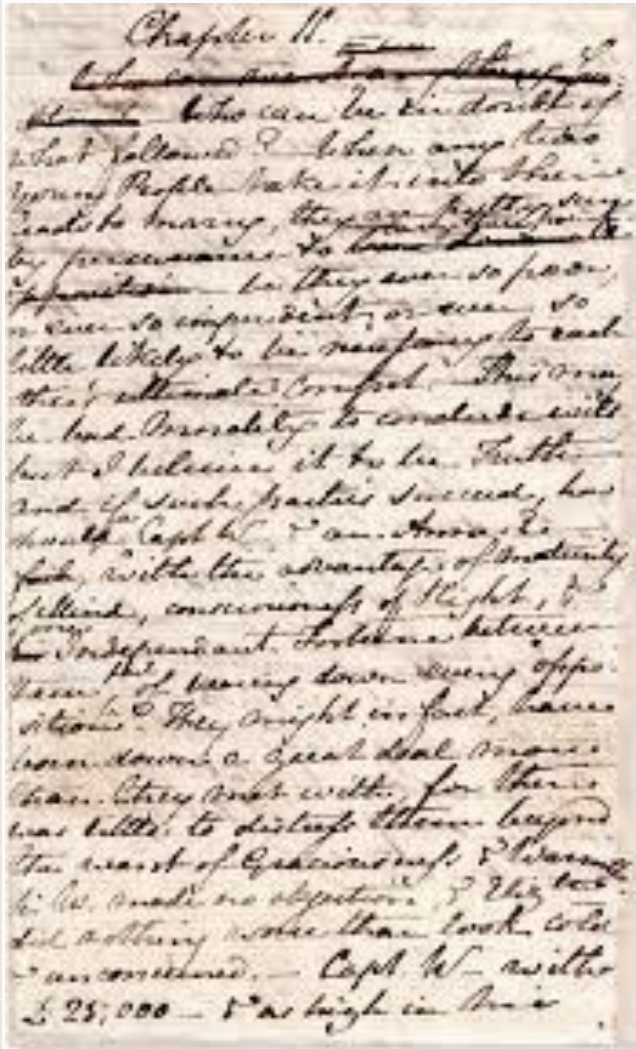 Chapter 11.
Who can be in doubt of
what followed? When any two
young People take it into their
heads to marry, they are
by perseverance to
be they ever so poor,
or ever so imprudent, or ever so
little likely to be necessary to each
other's ultimate comfort. This may
be bad Morality to conclude with,
but I believe it to be Truth
and if such parties succeed, how
should Capt W— & an Anne E—
fail, with the advantage of Maturity
of Mind, consciousness of Right, &
one Independant Fortune between
them of bearing down every oppo-
sition? They might in fact, have
born down a great deal more
than they met with, for there
was little to distress them beyond
the want of Graciousness & Warmth.
W. made no objection, & Eliz:th
did nothing worse than look cold
& unconcerned. — Capt W— with
£25,000 — & as high in his